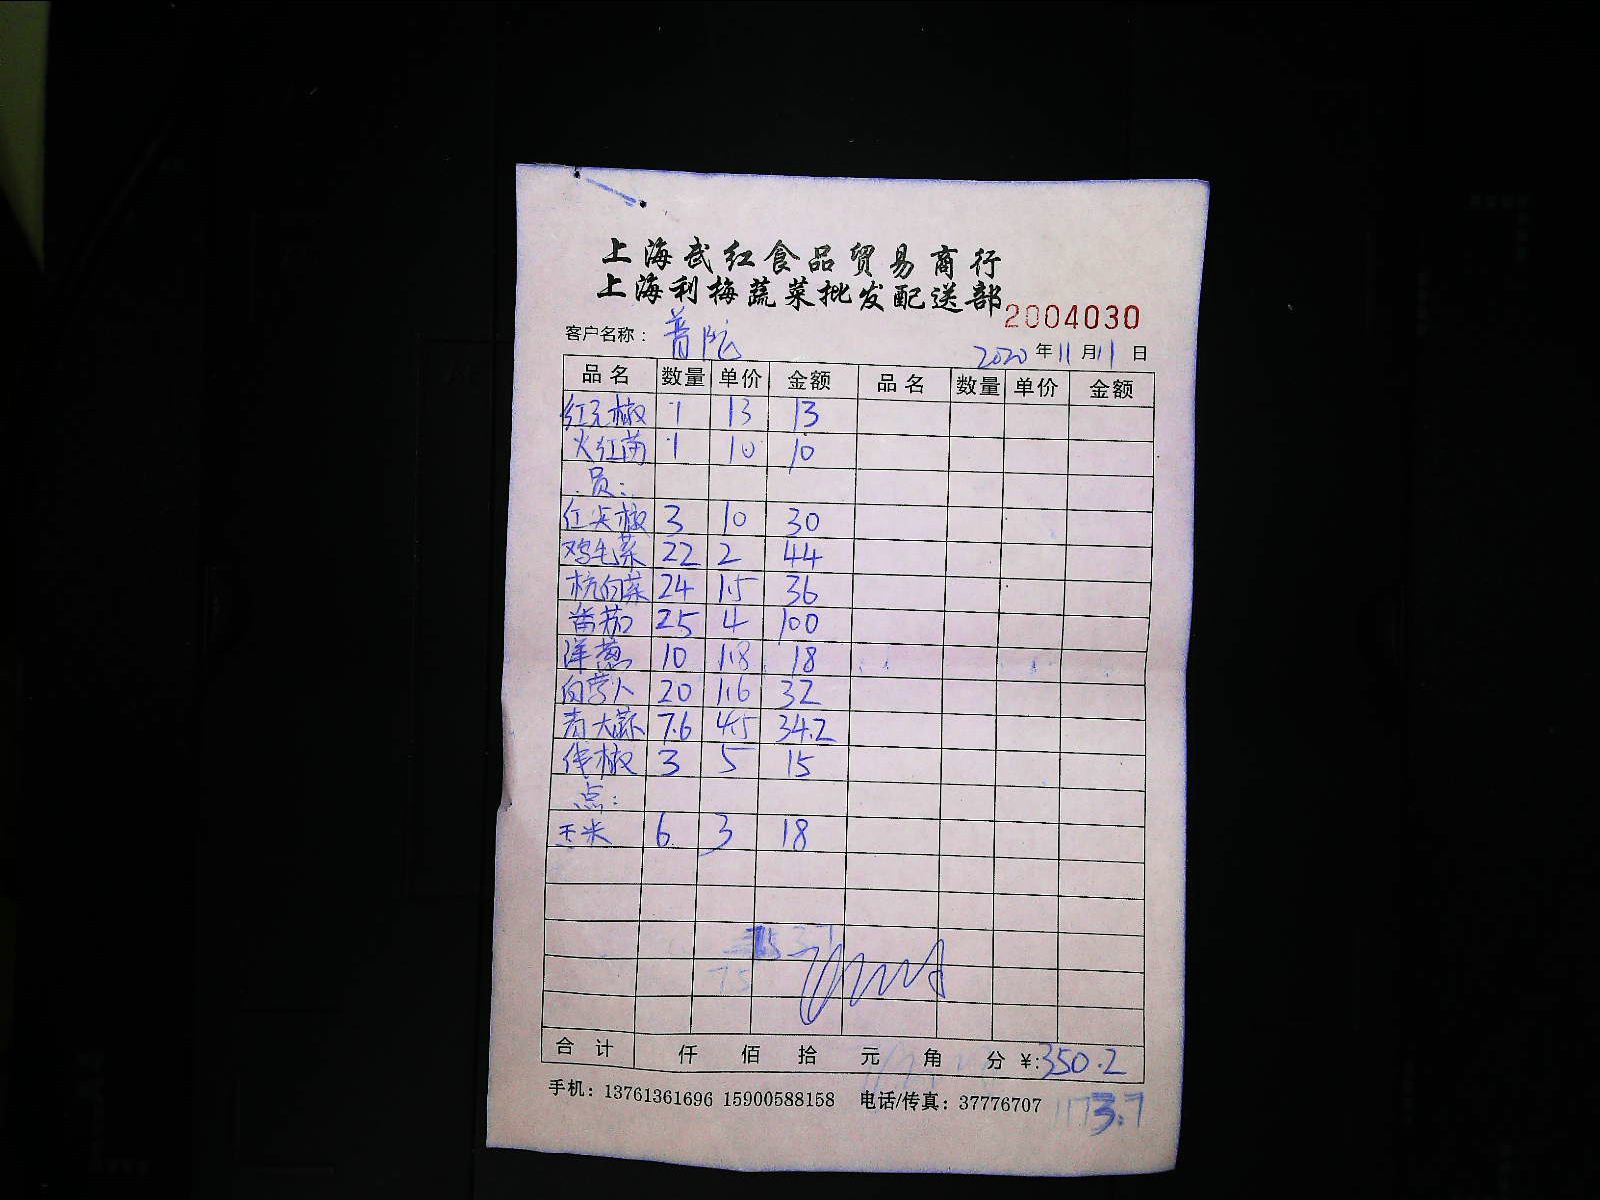 上海武红食品贸易商行
上海利梅蔬菜批发配送部
2004030
客户名称：普陀
2020年11月11日
品名 数量 单价 金额 品名 数量 单价 金额
红元椒 1 13 13
火红苗 1 10 10
员：
红尖椒 3 10 30
鸡毛菜 22 2 44
杭白菜 24 1.5 36
番茄 25 4 100
洋葱 10 1.8 18
白萝卜 20 1.6 32
青大蒜 7.6 4.5 34.2
线椒 3 5 15
点：
玉米 6 3 18
合计 仟 佰 拾 元 角 分 ¥:350.2
手机：13761361696 15900588158 电话/传真：37776707